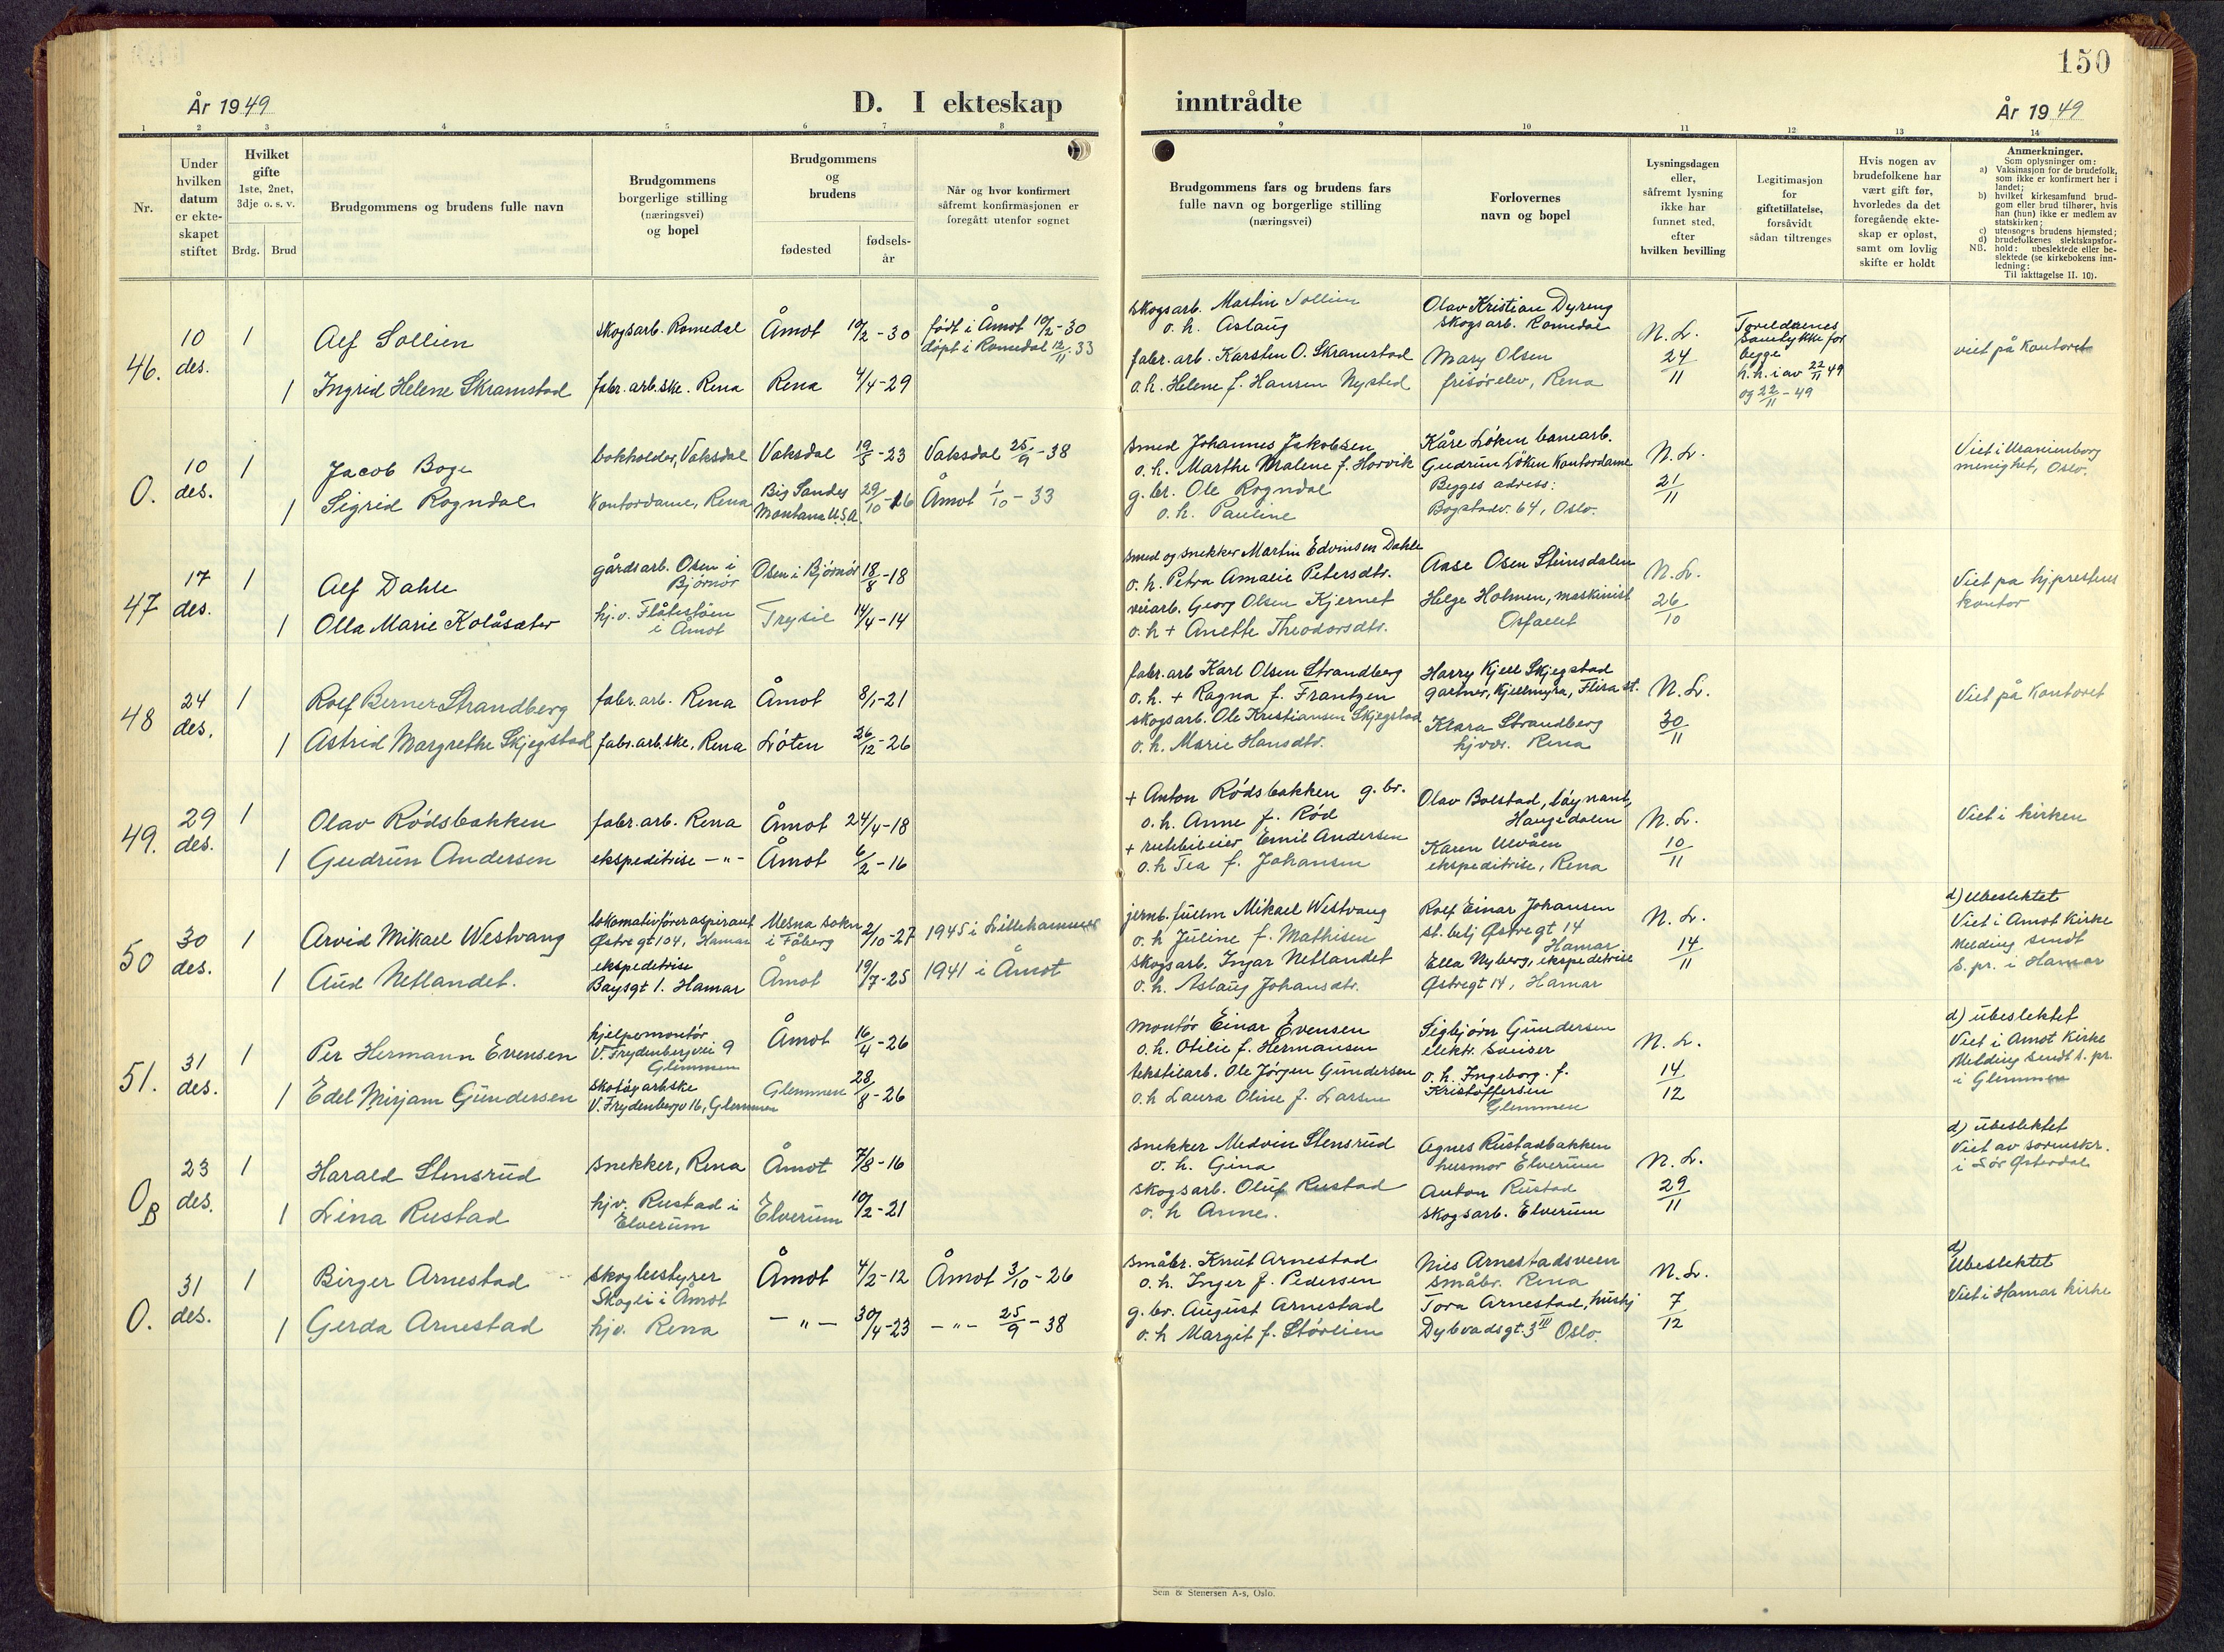 150
År 1949
D. I ekteskap
inntrådte
År 1949
1 2 3 4 5 6 7 8 9 10 11 12 13 14
Nr.
Under
hvilken
datum
er ekte-
skapet
stiftet
Hvilket
gifte
1ste, 2net,
3dje o. s. v.
Brdg. Brud
Brudgommens og brudens fulle navn
Brudgommens
borgerlige stilling
(næringsvei)
og bopel
Brudgommens
og
brudens
fødested
fødsels-
år
Når og hvor konfirmert
såfremt konfirmasjonen er
foregått utenfor sognet
Brudgommens fars og brudens fars
fulle navn og borgerlige stilling
(næringsvei)
Forlovernes
navn og bopel
Lysningsdagen
eller,
såfremt lysning
ikke har
funnet sted,
efter
hvilken bevilling
Legitimasjon
for
giftetillatelse,
forsåvidt
sådan tiltrenges
Hvis nogen av
brudefolkene har
vært gift før,
hvorledes da det
foregående ekte-
skap er opløst,
samt om lovlig
skifte er holdt
Anmerkninger.
Som oplysninger om:
a) Vaksinasjon for de brudefolk,
som ikke er konfirmert her i
landet;
b) hvilket kirkesamfund brud-
gom eller brud tilhører, hvis
han (hun) ikke er medlem av
statskirken;
c) utensogns brudens hjemsted;
d) brudefolkenes slektskapsfor-
hold: ubeslektede eller be-
slektede (se kirkebokens inn-
ledning:
NB.
Til iakttagelse II. 10).
46.
10
des.
1
Alf Sollien
skogsarb. Romedal
Åmot 10/2-30
født i Åmot 10/2-30
døpt i Romedal 12/11 33
1
Ingrid Helene Skramstad
fabr. arb.ske. Rena
Rena 4/4-29
skogsarb. Martin Sollien
o. h. Aslaug
fabr. arb. Karsten O. Skramstad
o. h. Helene f. Hansen Nysted
Olav Kristian Dyreng
skogsarb. Romedal
Mary Olsen
frisørelev, Rena
N. L.
24/11
Foreldrenes
samtykke for
begge
h.h. i av 22/11 49
og 22/11-49
viet på kontoret
0.
10
des.
1
Jacob Boge
bokholder, Vaksdal
Vaksdal 19/5-23
Vaksdal 25/9-38
1
Sigrid Rogndal
Kontordame, Rena
Big Sandes
Montana U.S.A. 29/10-16
Åmot 1/10-33
smed Johannes Jakobsen
o. h. Marthe Malene f. Horvik
g. br. Ole Rogndal
o. h. Pauline
Kåre Løken banearb.
Gudrun Løken Kontordame
Begges adress:
Bogstadv. 64, Oslo.
N. L.
21/11
Viet i Uranienborg
menighet, Oslo.
47
17
des.
1
Alf Dahle
gårdsarb. Osen i
Bjørnør
Osen i Bjørnør 18/8-18
1
Olla Marie Kolåsæter
hj.v. Flåtestøen
i Åmot
Trysil 14/4-14
smed og snekker Martin Edvinsen Dahle
o. h. Petra Amalie Petersdtr.
veiarb. Georg Olsen Kjernet
o. h + Anette Theodorsdtr.
Aase Osen Steinsdalen
Helge Holmen, maskinist
Osfallet
N. L.
26/10
Viet på hj.prestens
kontor
48
24
des.
1
Rolf Berner Strandberg
fabr. arb. Rena
Åmot 8/1-21
1
Astrid Margrethe Skjegstad
fabr. arb.ske, Rena
Løten 26/12-26
fabr. arb Karl Olsen Strandberg
o. h. + Ragna f. Frantzen
skogsarb. Ole Kristiansen Skjegstad
o. h. Marie Hansdtr.
Harry Kjell Skjegstad
gartner, Kjellmyra, Flisa st.
Klara Strandberg
hjvær. Rena
N. L.
30/11
Viet på kontoret
49.
29
des.
1
Olav Rødsbakken
fabr. arb. Rena
Åmot 24/4-18
1
Gudrun Andersen
ekspeditrise -"-
Åmot 6/2-16
+ Anton Rødsbakken g. br.
o. h. Anne f. Rød
+ rutebileier Emil Andersen
o. h Tea f. Johansen
Olav Bolstad, løynant,
Haugedalen
Karen Ulvåen
ekspeditrise, Rena
N. L.
10/11
Viet i kirken
50
30
des.
1
Arvid Mikael Westvang
lokomotivføreraspirant
Østre gt 104, Hamar
Mesna sokn
i Fåberg 2/10-27
1945 i Lillehammer
1
Aud Netlandet.
ekspeditrise
Baysgt 1. Hamar
Åmot 19/7-25
1941 i Åmot
jernb. fullm Mikael Westvang
o. h Juline f. Mathisen
skogsarb. Ingar Netlandet
o. h. Aslaug Johansdtr.
Rolf Einar Johansen
st. betj Østregt 14
Hamar
Ella Nyberg, ekspeditrise
Østregt 14, Hamar
N. L.
14/11
d) Ubeslektet
Viet i Åmot Kirke
Melding sendt
s. pr. i Hamar
51.
31
des.
1
Per Hermann Evensen
hjelpemontør
V. Frydenbergvei 9
Glemmen
Åmot 16/4-26
1
Edel Mirjam Gundersen
skotøyarb.ske
V. Frydenbergv 16, Glemmen
Glemmen 28/8-26
Montør Einar Evensen
o. h. Otilie f. Hermansen
tekstilarb. Ole Jørgen Gundersen
o. h Laura Oline f. Larsen
Sigbjørn Gundersen
elektr. sveiser
o. h. Ingeborg. f.
Kristoffersen
Glemmen
N. L.
14
12
d) ubeslektet
Viet i Åmot Kirke
Melding sendt s. pr.
i Glemmen
0B
23
des.
1
Harald Stensrud
snekker, Rena
Åmot 7/8-16
1
Lina Rustad
hjv. Rustad i
Elverum
Elverum 10/2-21
snekker Medvin Stensrud
o. h. Gina
skogsarb. Oluf Rustad
o. h Anne.
Agnes Rustadbakken
husmor Elverum
Anton Rustad
skogsarb. Elverum
N. L.
29/11
d) ubeslektet
Viet av sorenskr.
i Sør Østerdal
0.
31
des.
1
Birger Arnestad
skogbestyrer
Skogli i Åmot
Åmot 4/2-12
Åmot 3/10-26
1
Gerda Arnestad
hjv. Rena
-"- 30/4-23
-"- 25/9-38
småbr. Knut Arnestad
o. h. Inger f. Pedersen
g. br. August Arnestad
o. h Margit f. Størlien
Nils Arnestadsveen
småbr. Rena
Tora Arnestad, hushj
Dybvadsgt. 3 III Oslo.
N. L.
7
12
d)
Ubeslektet
Viet i Hamar kirke
Sem & Stenersen A-s, Oslo.